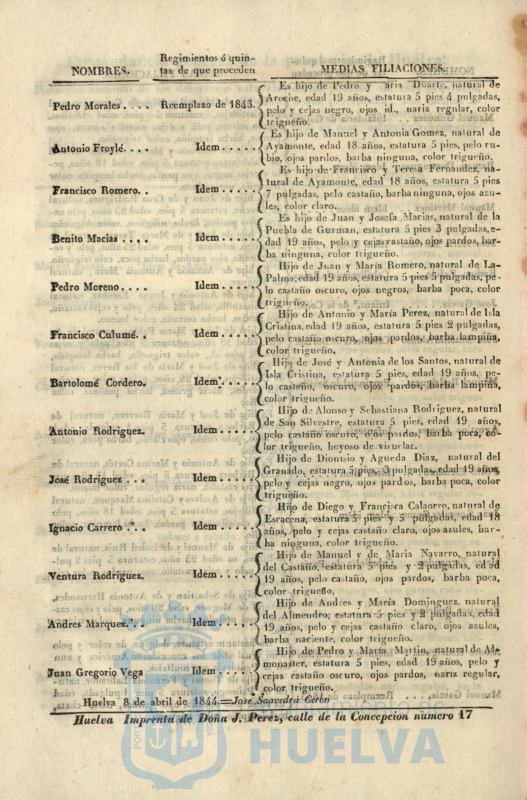 NOMBRES. Regimientos ó quin-
tas de que proceden MEDIAS FILIACIONES.
Pedro Morales . . . . Reemplazo de 1843.
Es hijo de Pedro y aria Duarte, natural de
Aroche, edad 19 años, estatura 5 pies 4 pulgadas,
pelo y cejas negro, ojos id., nariz regular, color
trigueño.
Antonio Froylé. . . . Idem . . . . .
Es hijo de Manuel y Antonia Gomez, natural de
Ayamonte, edad 18 años, estatura 5 pies, pelo ru-
bio, ojos pardos, barba ninguna, color trigueño.
Francisco Romero. . Idem . . . . .
Es hijo de Francisco y Teresa Fernandez, na-
tural de Ayamonte, edad 18 años, estatura 5 pies
7 pulgadas, pelo castaño, barba ninguna, ojos azu-
les, color claro.
Benito Macias . . . . Idem . . . . .
Es hijo de Juan y Josefa Macias, natural de la
Puebla de Guzman, estatura 5 pies 3 pulgadas, e-
dad 19 años, pelo y cejas castaño, ojos pardos, bar-
ba ninguna, color trigueño.
Pedro Moreno. . . . Idem . . . . .
Hijo de Juan y María Romero, natural de La-
Palma, edad 19 años, estatura 5 pies 5 pulgadas, pe-
lo castaño oscuro, ojos negros, barba poca, color
trigueño.
Francisco Culumé. . Idem . . . . .
Hijo de Antonio y María Perez, natural de Isla
Cristina, edad 19 años, estatura 5 pies 2 pulgadas,
pelo castaño oscuro, ojos pardos, barba lampiña,
color trigueño.
Bartolomé Cordero. Idem . . . . .
Hijo de José y Antonia de los Santos, natural de
Isla Cristina, estatura 5 pies, edad 19 años, pe-
lo castaño, oscuro, ojos pardos, barba lampiña,
color trigueño.
Antonio Rodriguez. Idem . . . . .
Hijo de Alonso y Sebastiana Rodriguez, natural
de San Silvestre, estatura 5 pies, edad 19 años,
pelo castaño oscuro, ojos pardos, barba poca, co-
lor trigueño, hoyoso de viruelas.
José Rodriguez . . . Idem . . . . .
Hijo de Dionisio y Agueda Diaz, natural del
Granado, estatura 5 pies, 3 pulgadas, edad 19 años,
pelo y cejas negro, ojos pardos, barba poca, color
trigueño.
Ignacio Carrero . . . Idem . . . . .
Hijo de Diego y Francisca Calaorro, natural de
Escacena, estatura 5 pies y 5 pulgadas, edad 18
años, pelo y cejas castaño claro, ojos azules, bar-
ba ninguna, color trigueño.
Ventura Rodriguez. Idem . . . . .
Hijo de Manuel y de Maria Navarro, natural
del Castaño, estatura 5 pies y 2 pulgadas, edad
19 años, pelo castaño, ojos pardos, barba poca,
color trigueño.
Andres Marquez. . . Idem . . . . .
Hijo de Andres y María Dominguez, natural
del Almendro, estatura 5 pies y 2 pulgadas, edad
19 años, pelo y cejas castaño claro, ojos azules,
barba naciente, color trigueño.
Juan Gregorio Vega Idem . . . . .
Hijo de Pedro y María Martin, natural de Al-
monaster, estatura 5 pies, edad 19 años, pelo y
cejas castaño oscuro, ojos pardos, nariz regular,
color trigueño.
Huelva 8 de abril de 1844.—Jose Saavedra Cerin
Huelva Imprenta de Doña J. Perez, calle de la Concepcion número 17
HUELVA